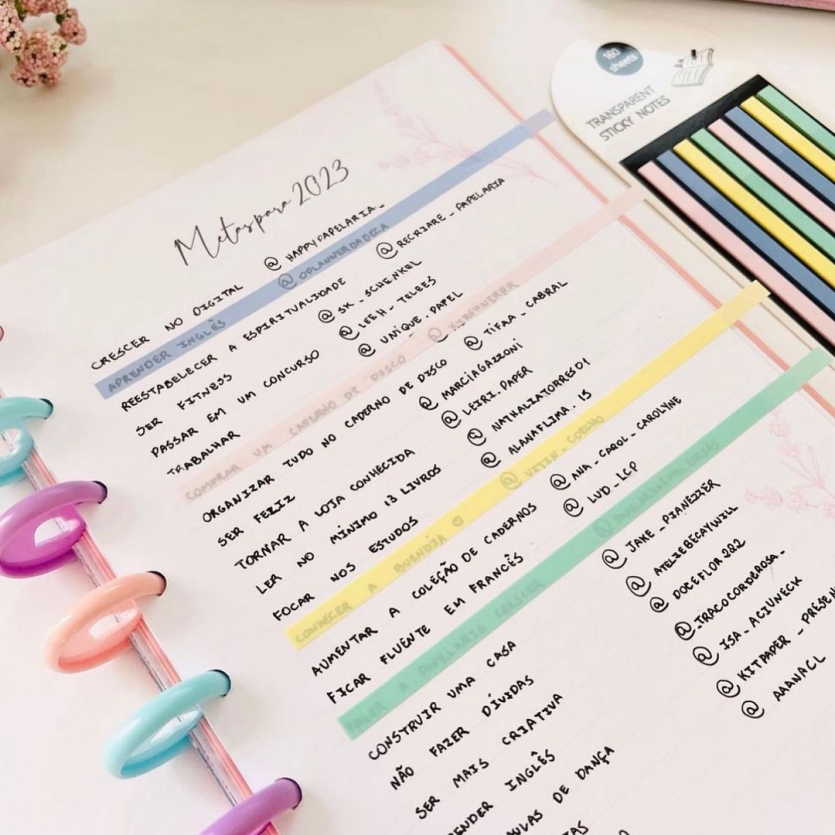 Metas para 2023
CRESCER NO DIGITAL @HAPPYPAPELARIA_
APRENDER INGLÊS @OPLANNERDADECA
REESTABELECER A ESPIRITUALIDADE @RECRIARE_PAPELARIA
SER FITNESS @SK_SCHENKEL
PASSAR EM UM CONCURSO @LEEH_TELEES
TRABALHAR @UNIQUE.PAPEL
COMPRAR UM CADERNO DE DISCO @
ORGANIZAR TUDO NO CADERNO DE DISCO @TIFAA_CABRAL
SER FELIZ @MARCIAGAZZONI
TORNAR A LOJA CONHECIDA @LEIRI.PAPER
LER NO MÍNIMO 13 LIVROS @NATHALIATORRESD1
FOCAR NOS ESTUDOS @ALANAFLIMA.15
CONHECER A BUENDÍA @VITIN_COELHO
AUMENTAR A COLEÇÃO DE CADERNOS @ANA_CAROL_CAROLYNE
FICAR FLUENTE EM FRANCÊS @LUD_LCP
FAZER A PAPELARIA CRESCER @
CONSTRUIR UMA CASA @JAKE_PIANEZZER
NÃO FAZER DÍVIDAS @ATELIEBECAYWILL
SER MAIS CRIATIVA @DOCEFLOR282
ENDER INGLÊS @.TRACOCORDEROSA_
ULAS DE DANÇA @ISA_ACIUNECK
@KITPAPER_PRESEN
@AAANACL
160
sheets
TRANSPARENT
STICKY NOTES